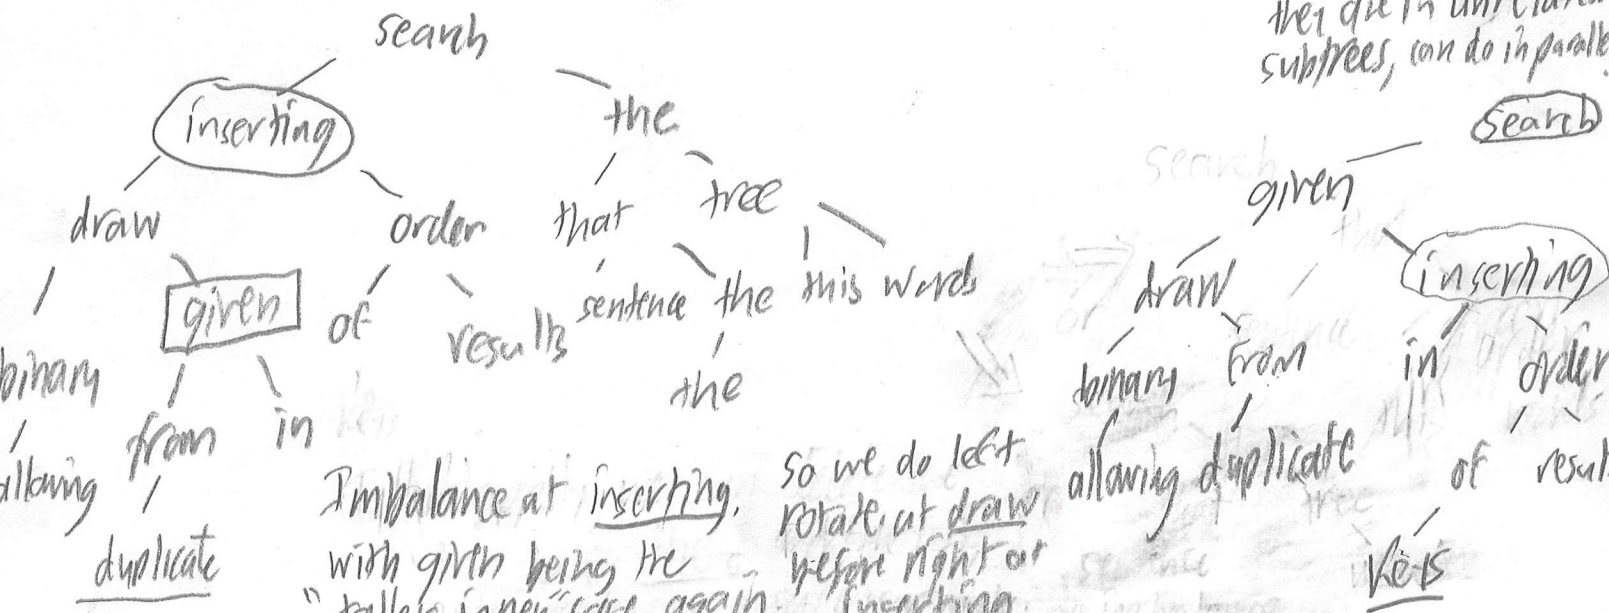 search
inserting
the
draw
order
that
tree
given
of
results
sentence
the
this
words
binary
from
in
the
allowing
duplicate
Imbalance at inserting,
with given being the
"taller inner" case again.
so we do left
rotate at draw
before right at
inserting
subtrees, can do in parallel
search
given
draw
inserting
binary
from
in
order
allowing
duplicate
of
keys